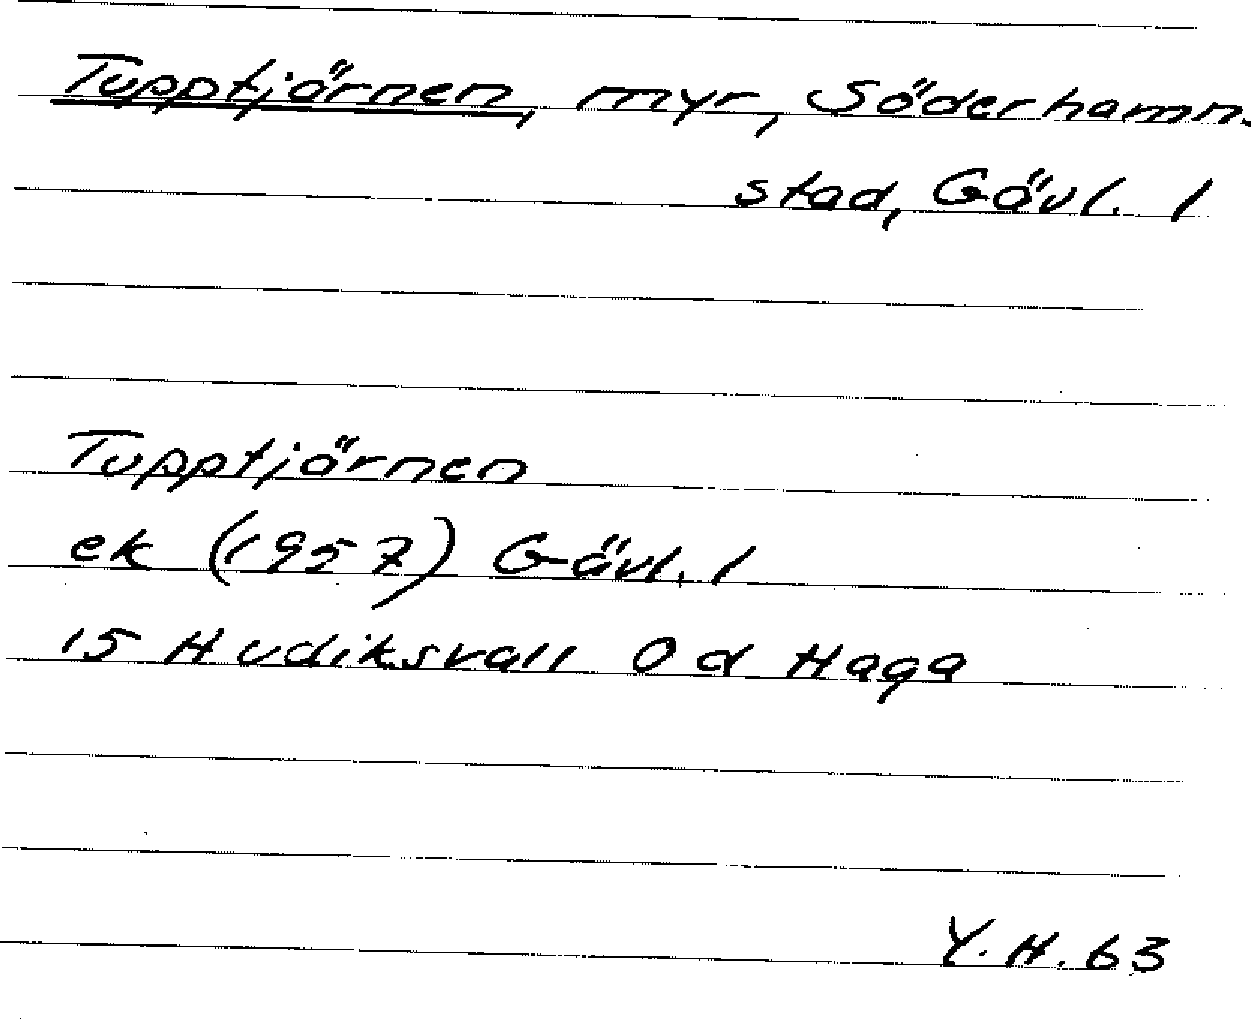 Tupptjärnen, myr, Söderhamn.
stad, Gävl. l
Tupptjärnen
ek (1957) Gävl. l
15 Hudiksvall 0 d Haga
Y.H. 63